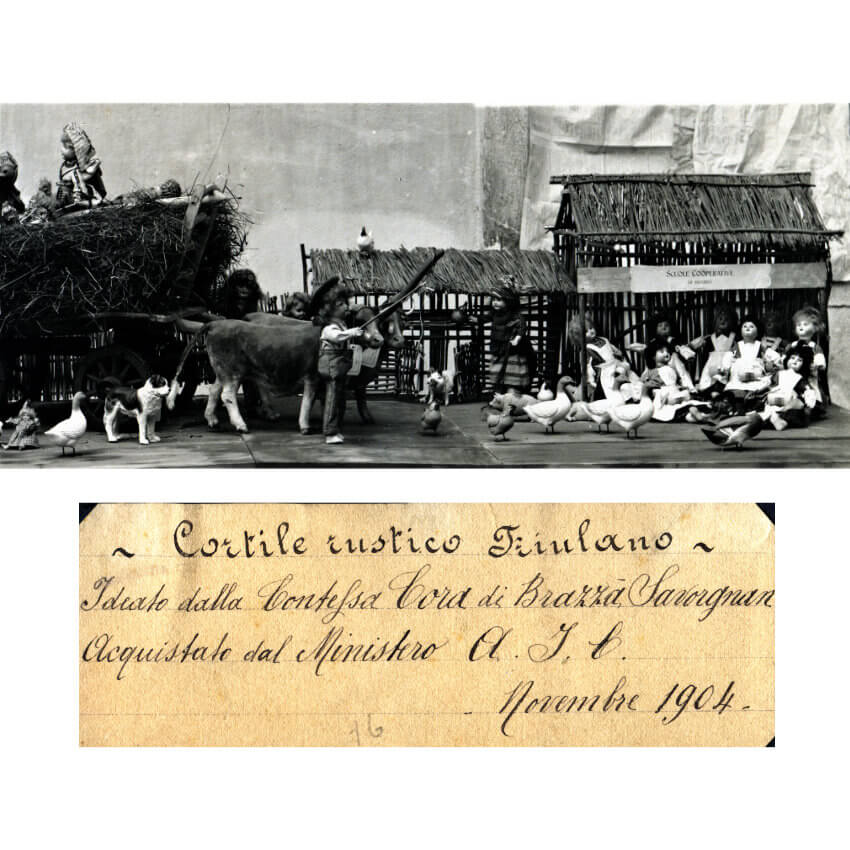 SCUOLE COOPERATIVE
~ Cortile rustico Friulano ~
Ideato dalla Contessa Cora di Brazzà Savorgnan
Acquistato dal Ministero A. I. C.
Novembre 1904.
16